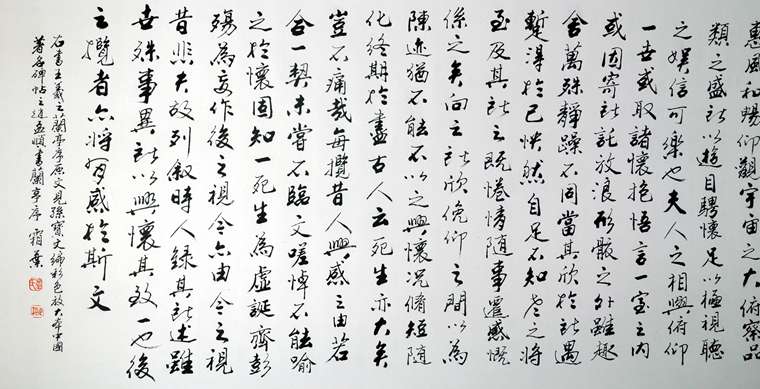 惠風和暢仰觀宇宙之大俯察品
類之盛所以遊目騁懷足以極視聽
之娛信可樂也夫人之相與俯仰
一世或取諸懷抱悟言一室之內
或因寄所託放浪形骸之外雖趣
舍萬殊靜躁不同當其欣於所遇
暫得於己快然自足不知老之將
至及其所之既惓情隨事遷感慨
係之矣向之所欣俛仰之間以為
陳迹猶不能不以之興懷況脩短隨
化終期於盡古人云死生亦大矣
豈不痛哉每攬昔人興感之由若
合一契未嘗不臨文嗟悼不能喻
之於懷固知一死生為虛誕齊彭
殤為妄作後之視今亦由今之視
昔悲夫故列敘時人錄其所述雖
世殊事異所以興懷其致一也後
之攬者亦將有感於斯文
右書王羲之蘭亭序原文見孫寶文編彩色放大本中國
著名碑帖之趙孟頫書蘭亭序 霜葉